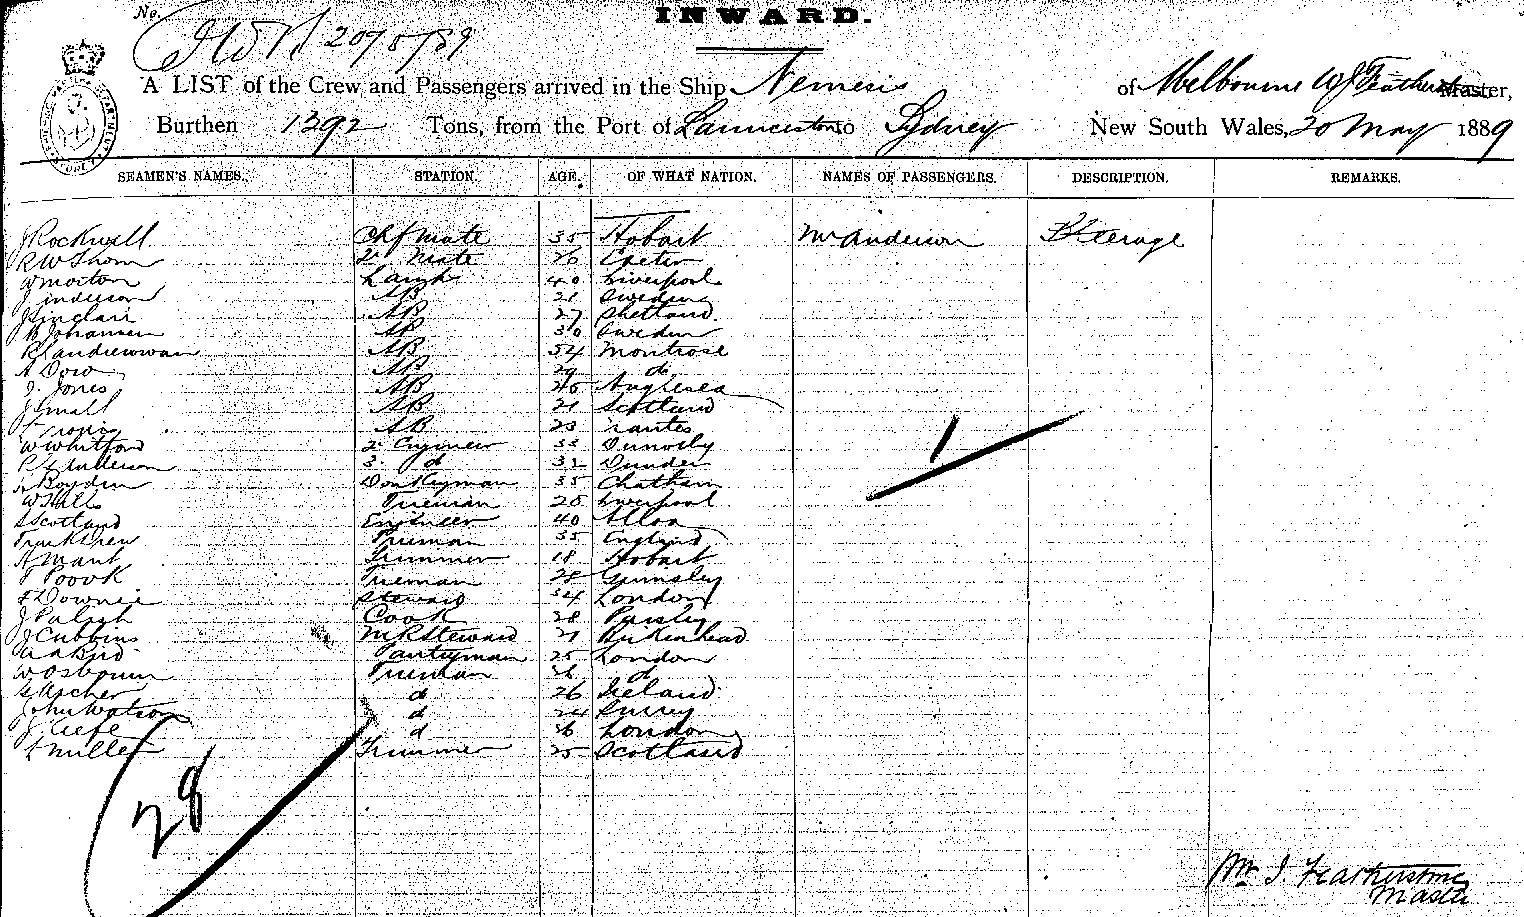 INWARD.
No. 207 5/89
A LIST of the Crew and Passengers arrived in the Ship Nemesis of Melbourne W J Featherstone Master,
Burthen 1392 Tons, from the Port of Launceston to Sydney New South Wales, 20 May 1889
SEAMEN'S NAMES. STATION. AGE. OF WHAT NATION. NAMES OF PASSENGERS. DESCRIPTION. REMARKS.
J Rockwell Chf mate 35 Hobart Mr Anderson Steerage
R W Thom 2 mate 26 Exeter
W Morton Lamps 40 Liverpool
J Anderson AB 21 Sweden
J Sinclair AB 27 Shetland
B Johansen AB 30 Sweden
AB 54 Montrose
A Dow AB 29 do
J. Jones AB 25 Anglesea
J Small AB 21 Scotland
AB 23
W Whitford 2 Engineer 33
Anderson 3. d 32 Dundee
Boyden Donkeyman 35 Chatham
W Hall Fireman 28 Liverpool
Scotland Engineer 40 Alloa
Fireman 35 England
A Mant Trimmer 18 Hobart
T Poook Fireman 28 Grimsby
Downie Steward 34 London
J Cook 28 Paisley
J Cubbins M R Steward 21 Birkenhead
Pantryman 25 London
W Osbourn Fireman 36 d
G Archer d 26 Ireland
John Watson d 24 Surrey
J d 36 London
Miller Trimmer 25 Scotland
1
28
Wm J Featherstone
Master